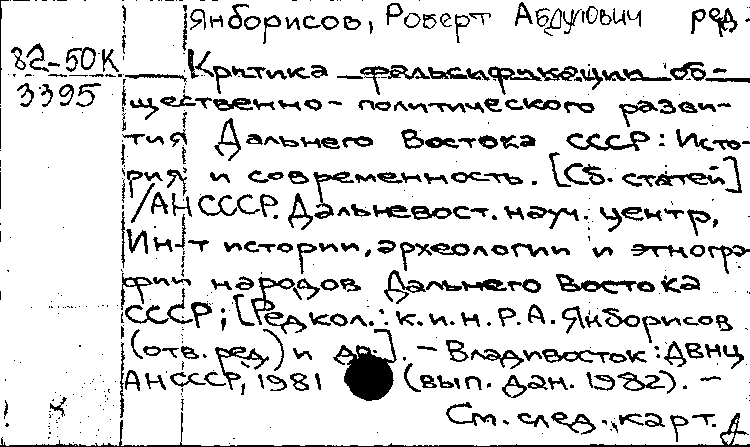 Янборисов, Роберт Абдулович ред.
82-50К
3395
Критика фальсификации об-
щественно-политического разви-
тия Дальнего Востока СССР: Исто-
рия и современность. [Сб. статей]
/АН СССР. Дальневост. науч. центр,
Ин-т истории, археологии и этногра-
фии народов Дальнего Востока
СССР; [Редкол.: к.и.н. Р.А. Янборисов
(отв. ред.) и др.]. - Владивосток: ДВНЦ
АН СССР, 1981 (вып. дан. 1982). -
См. след. карт.